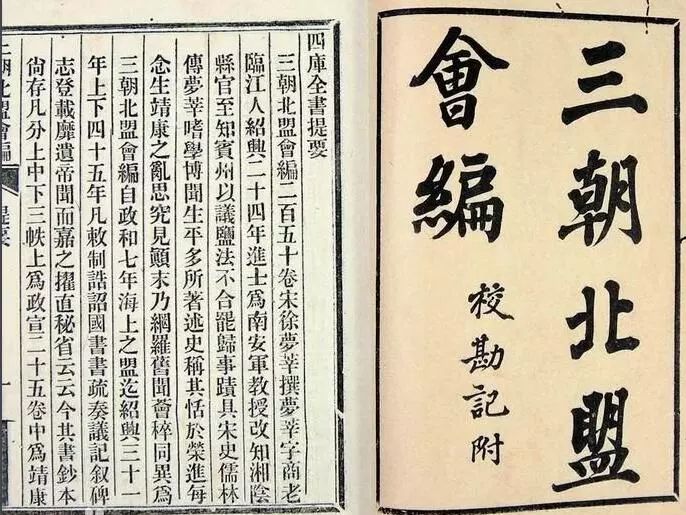 三朝北盟
會編
校勘記附
四庫全書提要
三朝北盟會編二百五十卷宋徐夢莘撰夢莘字商老
臨江人紹興二十四年進士爲南安軍教授改知湘陰
縣官至知賓州以議鹽法不合罷歸事蹟具宋史儒林
傳夢莘嗜學博聞生平多所著述史稱其恬於榮進每
念生靖康之亂思究見顛末乃網羅舊聞薈稡同異爲
三朝北盟會編自政和七年海上之盟迄紹興三十一
年上下四十五年凡敕制誥詔國書書疏奏議記敘碑
志登載靡遺帝聞而嘉之擢直秘省云云今其書鈔本
尚存凡分上中下三帙上爲政宣二十五卷中爲靖康
三朝北盟會編 提要 一